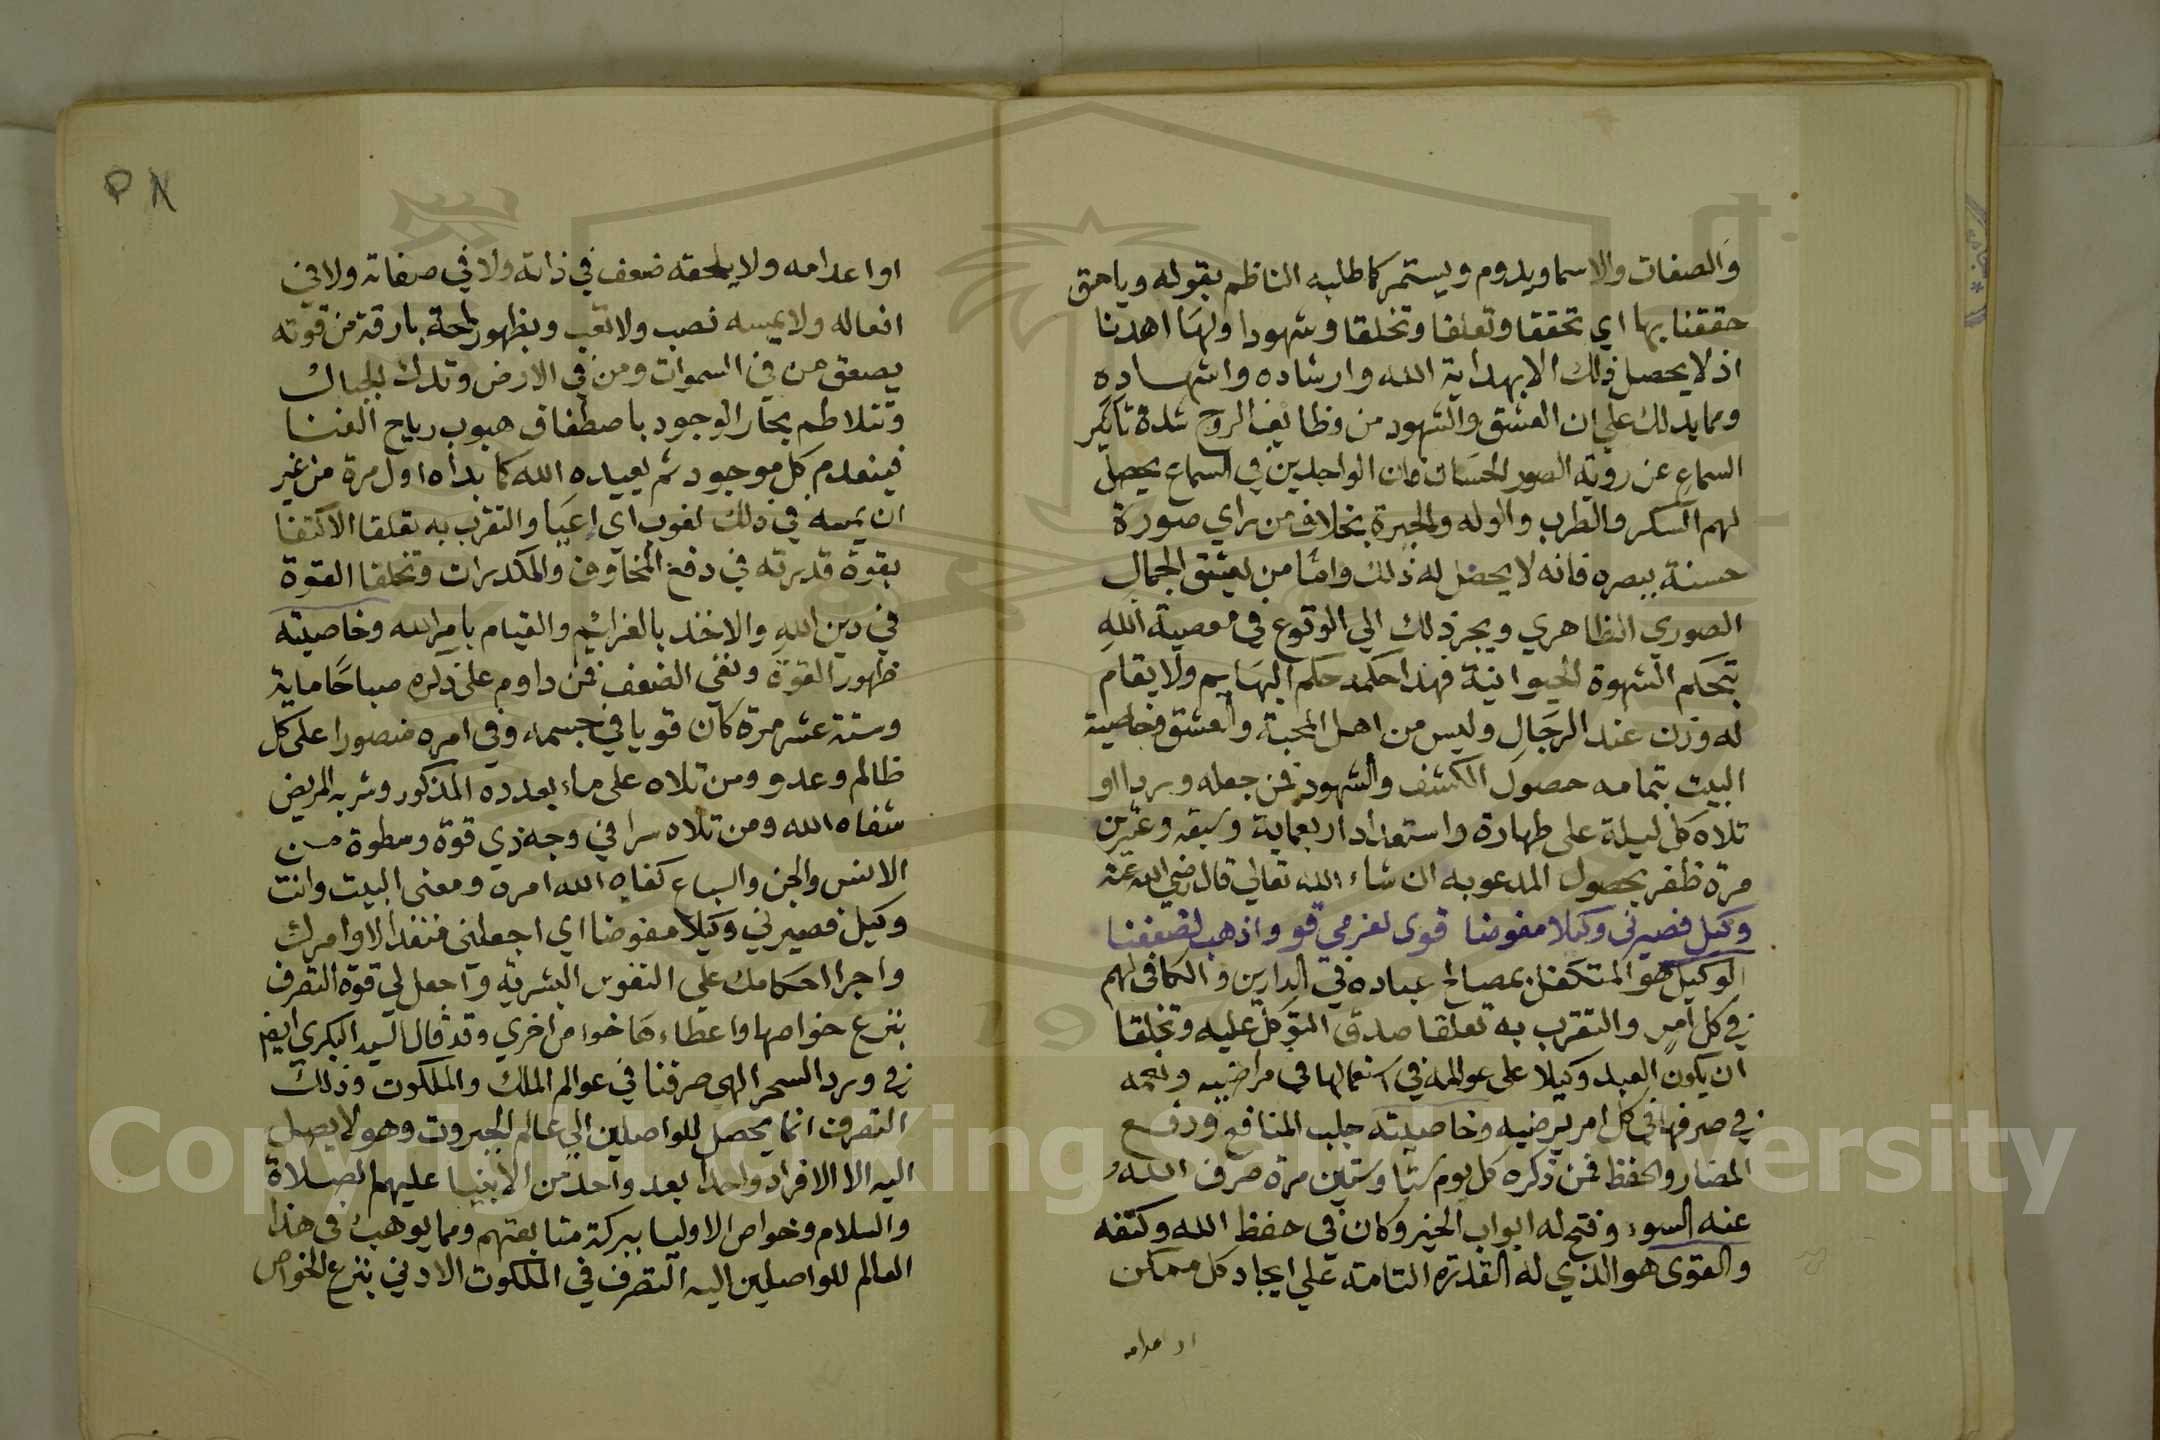 والصفات والاسما ويدوم ويستمر كما طلبه الناظم بقوله وياحق
حققنا بها اي تحققا وتعلقا وتخلقا وشهودا ولها اهدنا
اذ لا يحصل ذلك الا بهداية الله وارشاده واشهاده
ومما يدلك علي ان العشق والشهود من وظايف الروح شدة تاثير
السماع عن روية الصور الحسان فان الواجدين في السماع يحصل
لهم السكر والطرب والوله والحيرة بخلاف من راي صورة
حسنة ببصره فانه لا يحصل له ذلك واما من يعشق الجمال
الصوري الظاهري ويجر ذلك الي الوقوع في معصية الله
بتحكم الشهوة الحيوانية فهذا حكمه حكم البهايم ولا يقام
له وزن عند الرجال وليس من اهل المحبة والعشق وخاصية
البيت بتمامه حصول الكشف والشهود فمن جعله وردا او
تلاه كل ليلة على طهارة واستعداد اربعماية وسبعة وعشرين
مرة ظفر بحصول المدعو به ان شاء الله تعالي قال رضي الله عنه
وكيل فصيرني وكيلا مفوضا قوى لعزمي قو واذهب لضعفنا
الوكيل هو المتكفل بمصالح عباده في الدارين والكافى لهم
في كل امر والتقرب به تعلقا صدق التوكل عليه وتخلقا
ان يكون العبد وكيلا على عوالمه في استعمالها في مراضيه ونعمه
في صرفها في كل امر يرضيه وخاصيته جلب المنافع ودفع
المضار والحفظ فمن ذكره كل يوم ستا وستين مرة صرف الله
عنه السوء وفتح له ابواب الخير وكان في حفظ الله وكنفه
والقوى هو الذي له القدرة التامة علي ايجاد كل ممكن
او اعدامه
او اعدامه ولا يلحقه ضعف في ذاته ولا في صفاته ولا في
افعاله ولا يمسه نصب ولا تعب وبظهور لمحة بارقة من قوته
يصعق من في السموات ومن في الارض وتدك الجبال
وتتلاطم بحار الوجود باصطفاق هبوب رياح الفنا
فينعدم كل موجود ثم يعيده الله كما بداه اول مرة من غير
ان يمسه في ذلك لغوب اي إعيا والتقرب به تعلقا الاكتفا
بقوة قدرته في دفع المخاوف والمكدرات وتخلقا القوة
في دين الله والاخذ بالعزائم والقيام بامر الله وخاصيته
ظهور القوة ونفي الضعف فمن داوم على ذكره صباحا ماية
وستة عشر مرة كان قويا في جسمه وفي امره منصورا على كل
ظالم وعدو ومن تلاه على ماء بعدده المذكور وشربه المريض
شفاه الله ومن تلاه سرا في وجه ذي قوة وسطوة من
الانس والجن والسباع كفاه الله امره ومعنى البيت وانت
وكيل فصيرني وكيلا مفوضا اي اجعلني منفذا لاوامرك
واجرا احكامك علي النفوس البشرية واجعل لي قوة التصرف
بنزع خواصها واعطاءها خواص اخري وقد قال السيد البكري ايضا
في ورد السحر الهي صرفنا في عوالم الملك والملكوت وذلك
التصرف انما يحصل للواصلين الي عالم الجبروت وهو لا يصل
اليه الا الافراد واحدا بعد واحد من الانبيا عليهم الصلاة
والسلام وخواص الاوليا ببركة متابعتهم ومما يوهب في هذا
العالم للواصلين اليه التصرف في الملكوت الادني بنزع الخواص
Copyright © King Saud University